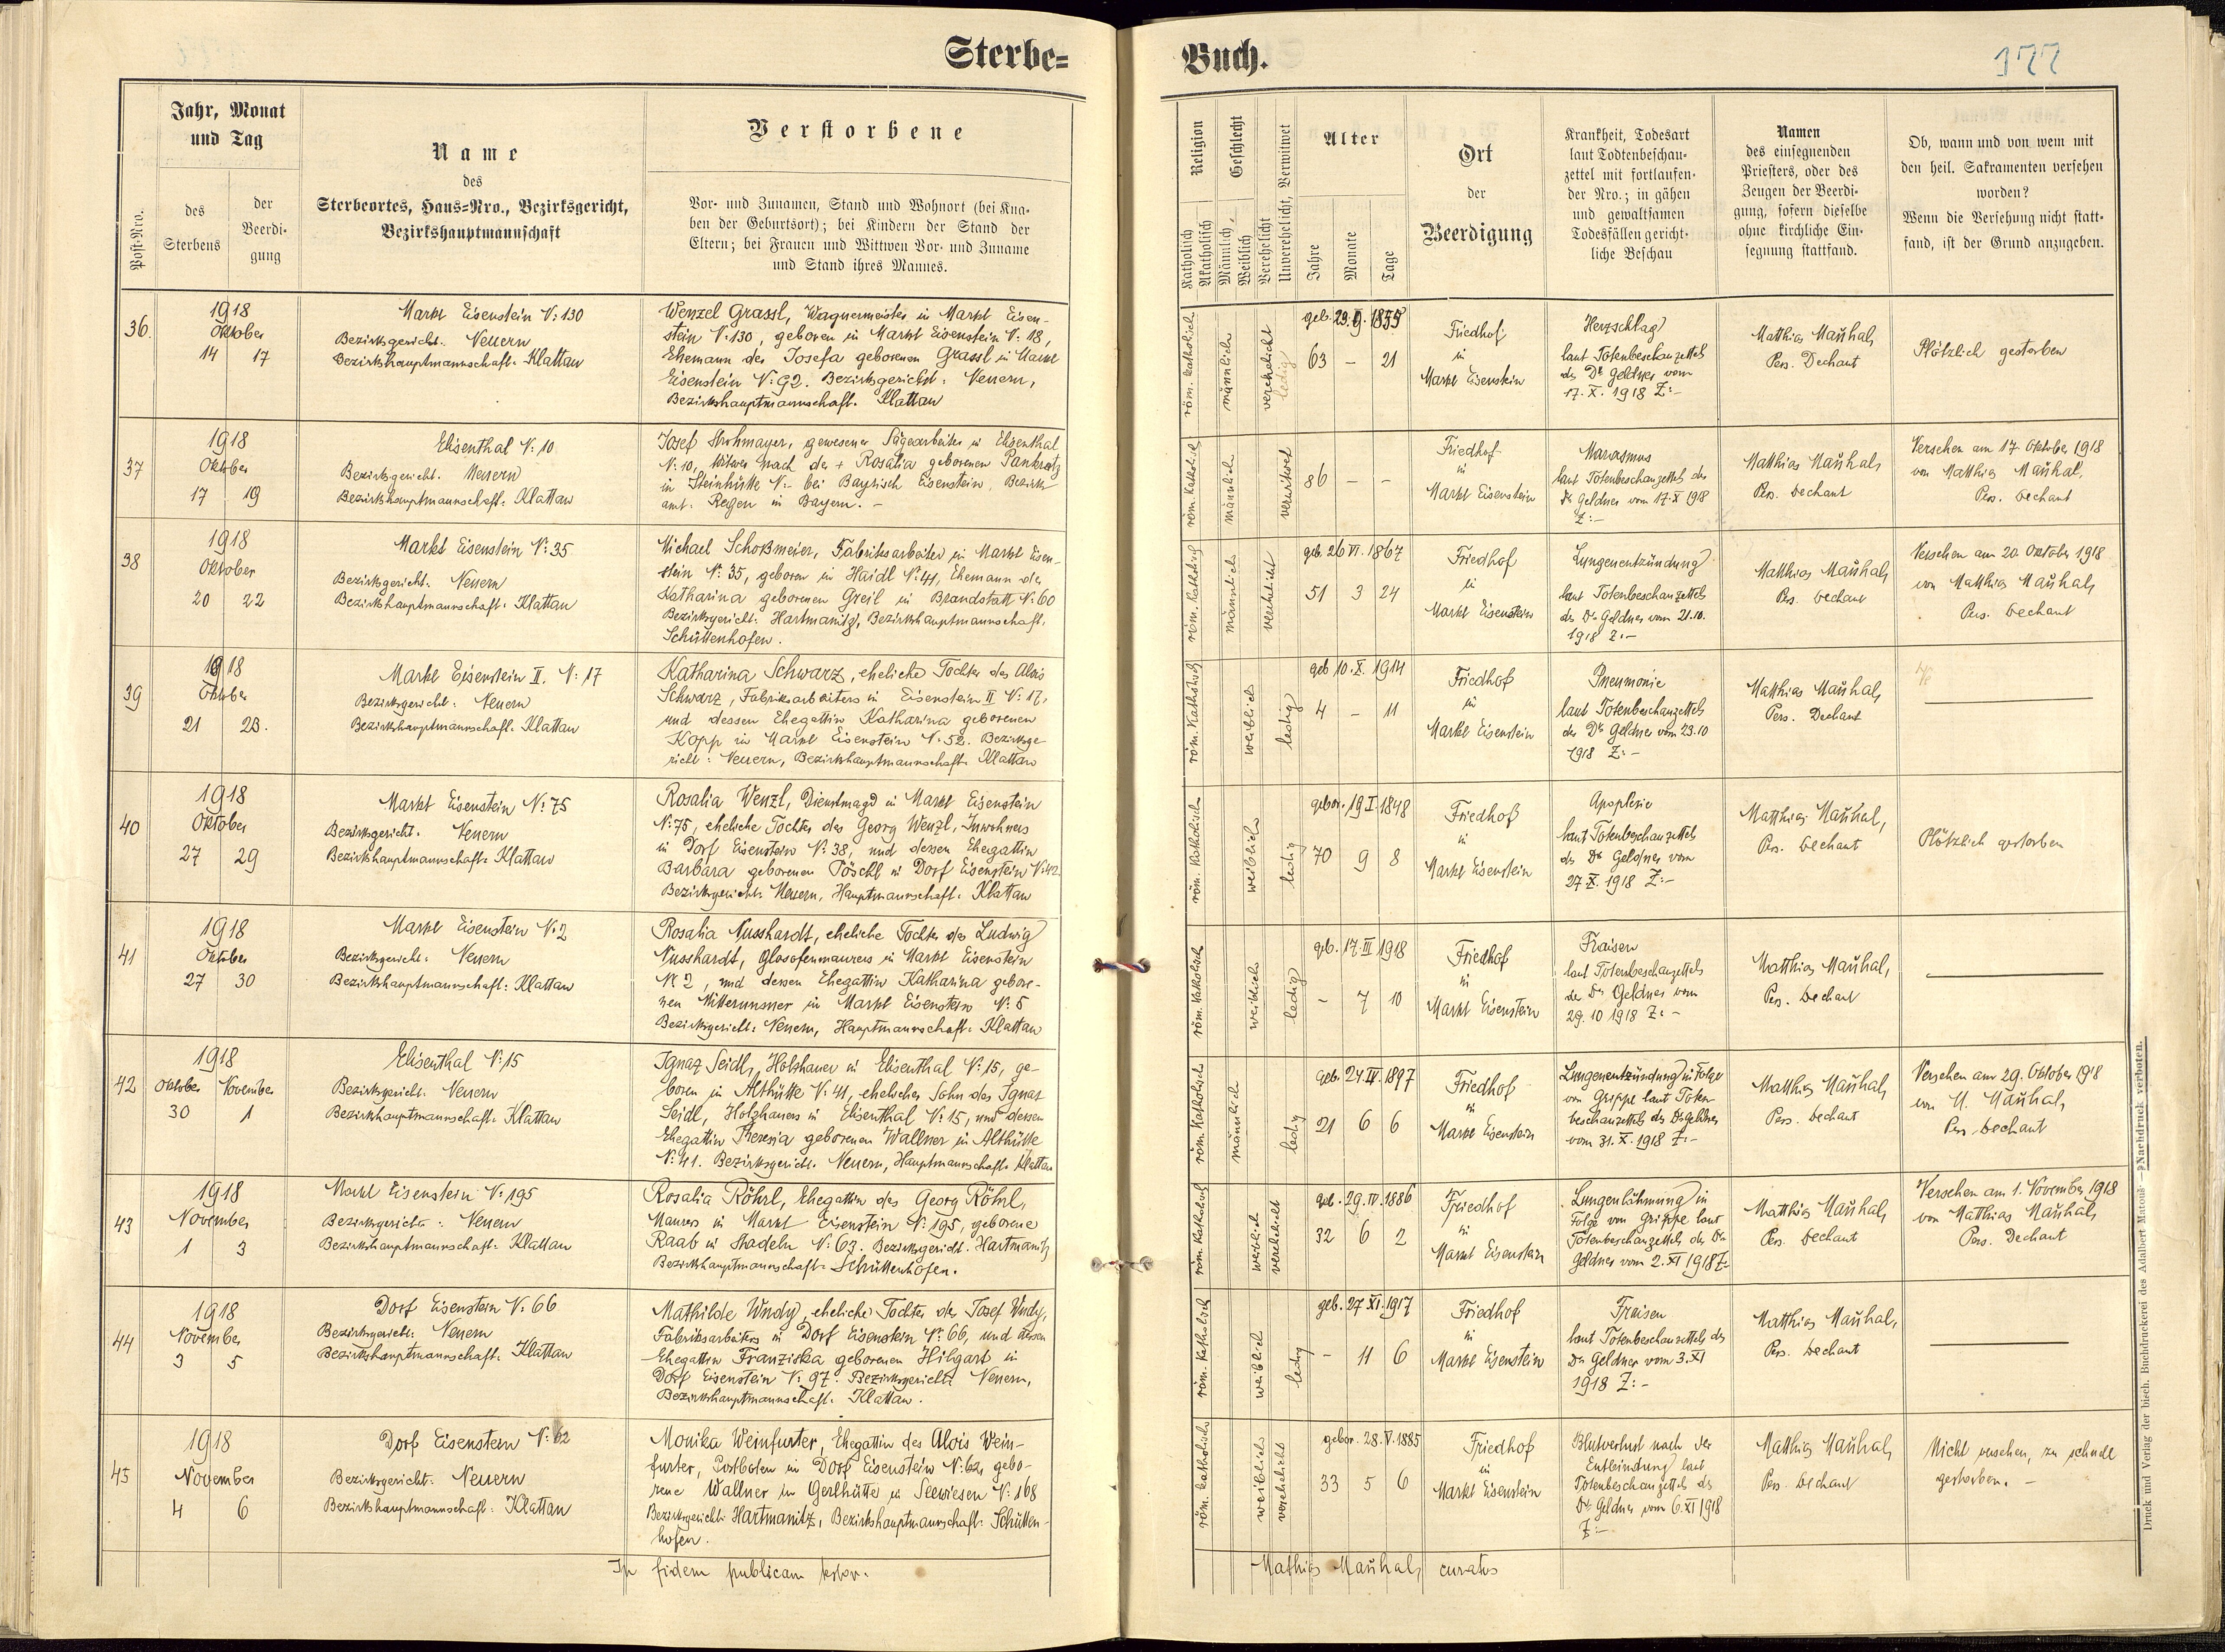 Sterbe=
Buch.
177
Post-Nro.
Jahr, Monat
und Tag
des
Sterbens
der
Beerdi-
gung
Name
des
Sterbeortes, Haus-Nro., Bezirksgericht,
Bezirkshauptmannschaft
Verstorbene
Vor- und Zunamen, Stand und Wohnort (bei Kna-
ben der Geburtsort); bei Kindern der Stand der
Eltern; bei Frauen und Wittwen Vor- und Zuname
und Stand ihres Mannes.
Religion
Katholisch
Akatholisch
Geschlecht
Männlich,
Weiblich
Verehelicht
Unverehelicht, Verwitwet
Alter
Jahre
Monate
Tage
Ort
der
Beerdigung
Krankheit, Todesart
laut Todtenbeschau-
zettel mit fortlaufen-
der Nro.; in gähen
und gewaltsamen
Todesfällen gericht-
liche Beschau
Namen
des einsegnenden
Priesters, oder des
Zeugen der Beerdi-
gung, sofern dieselbe
ohne kirchliche Ein-
segnung stattfand.
Ob, wann und von wem mit
den heil. Sakramenten versehen
worden?
Wenn die Versehung nicht statt-
fand, ist der Grund anzugeben.
36.
1918
Oktober
14 17
Markt Eisenstein N: 130
Bezirksgericht: Neuern
Bezirkshauptmannschaft: Klattau
Wenzel Grassl, Wagnermeister in Markt Eisen-
stein N: 130, geboren in Markt Eisenstein N: 18,
Ehemann der Josefa geborenen Grassl in Markt
Eisenstein N: 92. Bezirksgericht: Neuern,
Bezirkshauptmannschaft: Klattau
röm. katholisch
männlich
verehelicht
ledig
geb. 23. 9. 1855
63 – 21
Friedhof
in
Markt Eisenstein
Herzschlag
laut Totenbeschauzettel
des Dr. Geldner vom
17. X. 1918 Z:-
Matthias Mauhal,
Pers. Dechant
Plötzlich gestorben
37
1918
Oktober
17 19
Elisenthal N: 10
Bezirksgericht: Neuern
Bezirkshauptmannschaft: Klattau
Josef Strohmayer, gewesener Sägearbeiter in Elisenthal
N: 10, Witwer nach der + Rosalia geborenen Pankratz
in Steinhütte N:- bei Bayrisch Eisenstein, Bezirks-
amt: Regen in Bayern. -
röm. katholisch
männlich
verwitwet
86 – –
Friedhof
in
Markt Eisenstein
Marasmus
laut Totenbeschauzettel des
Dr. Geldner vom 17. X 1918
Z:-
Matthias Mauhal,
Pers. Dechant
Versehen am 17. Oktober 1918
von Matthias Mauhal,
Pers. Dechant
38
1918
Oktober
20 22
Markt Eisenstein N: 35
Bezirksgericht: Neuern
Bezirkshauptmannschaft: Klattau
Michael Schoßmeier, Fabriksarbeiter in Markt Eisen-
stein N: 35, geboren in Haidl N: 41, Ehemann der
Katharina geborenen Greil in Brandstatt N: 60
Bezirksgericht: Hartmanitz, Bezirkshauptmannschaft:
Schüttenhofen.
röm. katholisch
männlich
verehelicht
geb. 26 VI. 1867
51 3 24
Friedhof
in
Markt Eisenstein
Lungenentzündung
laut Totenbeschauzettel
des Dr. Geldner vom 21.10.
1918 Z:-
Matthias Mauhal,
Pers. Dechant
Versehen am 20. Oktober 1918
von Matthias Mauhal,
Pers. Dechant
39
1918
Oktober
21 23.
Markt Eisenstein II. N: 17
Bezirksgericht: Neuern
Bezirkshauptmannschaft: Klattau
Katharina Schwarz, eheliche Tochter des Alois
Schwarz, Fabriksarbeiters in Eisenstein II N: 17,
und dessen Ehegattin Katharina geborenen
Kopp in Markt Eisenstein N: 52. Bezirksge-
richt: Neuern, Bezirkshauptmannschaft: Klattau
röm. katholisch
weiblich
ledig
geb 10. X. 1914
4 – 11
Friedhof
in
Markt Eisenstein
Pneumonie
laut Totenbeschauzettel
des Dr. Geldner vom 23.10
1918 Z:-
Matthias Mauhal,
Pers. Dechant
40
1918
Oktober
27 29
Markt Eisenstein N: 75
Bezirksgericht: Neuern
Bezirkshauptmannschaft: Klattau
Rosalia Wenzl, Dienstmagd in Markt Eisenstein
N: 75, eheliche Tochter des Georg Wenzl, Inwohners
in Dorf Eisenstein N: 38, und dessen Ehegattin
Barbara geborenen Pöschl in Dorf Eisenstein N: 42.
Bezirksgericht: Neuern, Hauptmannschaft: Klattau
röm. katholisch
weiblich
ledig
gebor. 19 I. 1848
70 9 8
Friedhof
in
Markt Eisenstein
Apoplexie
laut Totenbeschauzettel
des Dr. Geldner vom
27 X. 1918 Z:-
Matthias Mauhal,
Pers. Dechant
Plötzlich gestorben
41
1918
Oktober
27 30
Markt Eisenstein N: 2
Bezirksgericht: Neuern
Bezirkshauptmannschaft: Klattau
Rosalia Nusshardt, eheliche Tochter des Ludwig
Nusshardt, Glasofenmaurers in Markt Eisenstein
N: 2, und dessen Ehegattin Katharina gebore-
nen in Markt Eisenstein N: 5
Bezirksgericht: Neuern, Hauptmannschaft: Klattau
röm. katholisch
weiblich
ledig
geb. 17. III 1918
- 7 10
Friedhof
in
Markt Eisenstein
Fraisen
laut Totenbeschauzettels
des Dr. Geldner vom
29. 10 1918 Z:-
Matthias Mauhal,
Pers. Dechant
42
1918
Oktober November
30 1
Elisenthal N: 15
Bezirksgericht: Neuern
Bezirkshauptmannschaft: Klattau
Ignaz Seidl, Holzhauer in Elisenthal N: 15, ge-
boren in Althütte N: 41, ehelicher Sohn des Ignaz
Seidl, Holzhauers in Elisenthal N: 15, und dessen
Ehegattin Theresia geborenen Wallner in Althütte
N: 41. Bezirksgericht: Neuern, Hauptmannschaft: Klattau
röm. katholisch
männlich
ledig
geb. 24 IV. 1897
21 6 6
Friedhof
in
Markt Eisenstein
Lungenentzündung in Folge
von Grippe laut Toten-
beschauzettels des Dr Geldner
vom 31. X. 1918 Z:-
Matthias Mauhal,
Pers. Dechant
Versehen am 29. Oktober 1918
von M. Mauhal,
Pers. Dechant
43
1918
November
1 3
Markt Eisenstein N: 195
Bezirksgericht: Neuern
Bezirkshauptmannschaft: Klattau
Rosalia Röhrl, Ehegattin des Georg Röhrl,
Maurers in Markt Eisenstein N: 195, geborene
Raab in Stadeln N: 63. Bezirksgericht: Hartmanitz
Bezirkshauptmannschaft: Schüttenhofen.
röm. katholisch
weiblich
verehelicht
geb. 29. IV. 1886
32 6 2
Friedhof
in
Markt Eisenstein
Lungenlähmung in
Folge von Grippe laut
Totenbeschauzettels des Dr.
Geldner vom 2. XI 1918 Z:-
Matthias Mauhal,
Pers. Dechant
Versehen am 1. November 1918
von Matthias Mauhal,
Pers. Dechant
44
1918
November
3 5
Dorf Eisenstein N: 66
Bezirksgericht: Neuern
Bezirkshauptmannschaft: Klattau
Mathilde Wudy, eheliche Tochter des Josef Wudy,
Fabriksarbeiters in Dorf Eisenstein N: 66, und dessen
Ehegattin Franziska geborenen Hilgart in
Dorf Eisenstein N: 97. Bezirksgericht: Neuern,
Bezirkshauptmannschaft: Klattau.
röm. katholisch
weiblich
ledig
geb. 27 XI. 1917
- 11 6
Friedhof
in
Markt Eisenstein
Fraisen
laut Totenbeschauzettels des
Dr. Geldner vom 3. XI
1918 Z:-
Matthias Mauhal,
Pers. Dechant
45
1918
November
4 6
Dorf Eisenstein N: 62
Bezirksgericht: Neuern
Bezirkshauptmannschaft: Klattau
Monika Weinfurter, Ehegattin des Alois Wein-
furter, Postboten in Dorf Eisenstein N: 62, gebo-
rene Wallner in Gerlhütte in Seewiesen N: 168
Bezirksgericht: Hartmanitz, Bezirkshauptmannschaft: Schütten-
hofen.
röm. katholisch
weiblich
verehelicht
gebor. 28. V. 1885
33 5 6
Friedhof
in
Markt Eisenstein
Blutverlust nach der
Entbindung laut
Totenbeschauzettels des
Dr. Geldner vom 6. XI 1918
Z:-
Matthias Mauhal,
Pers. Dechant
Nicht versehen, zu schnell
gestorben. -
In fidem publicam testor.
Mathias Mauhal, curatus
Druck und Verlag der bisch. Buchdruckerei des Adalbert Matouš. — Nachdruck verboten.